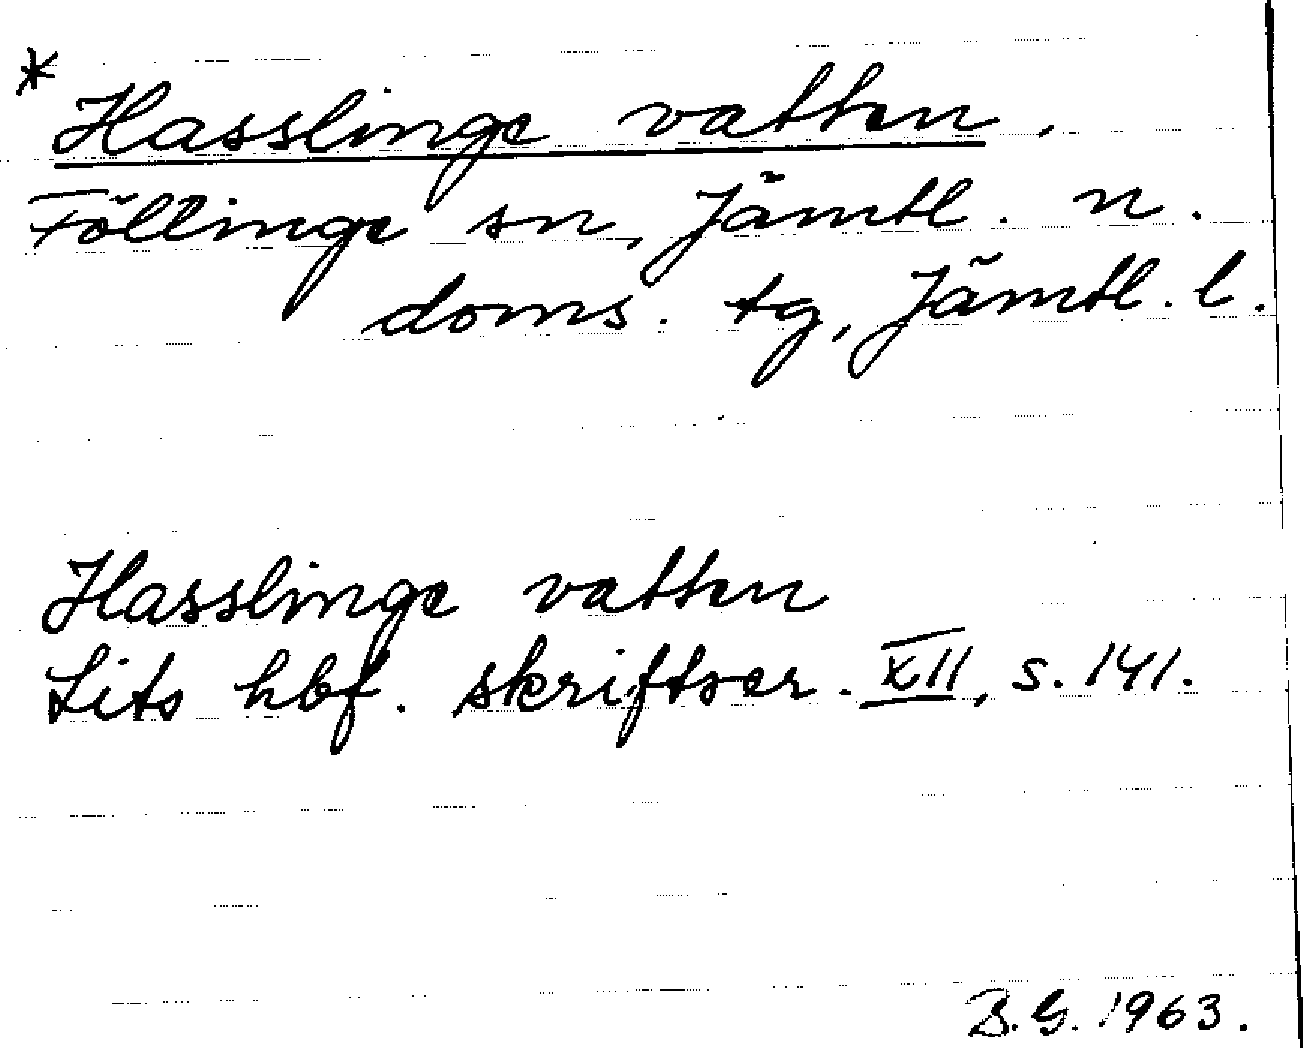 * Hasslinge vatten.
Föllinge sn, Jämtl. n.
doms. tg, Jämtl. l.
Hasslinge vatten
Lits hbf. skriftser. XII, s. 141.
B.G. 1963.